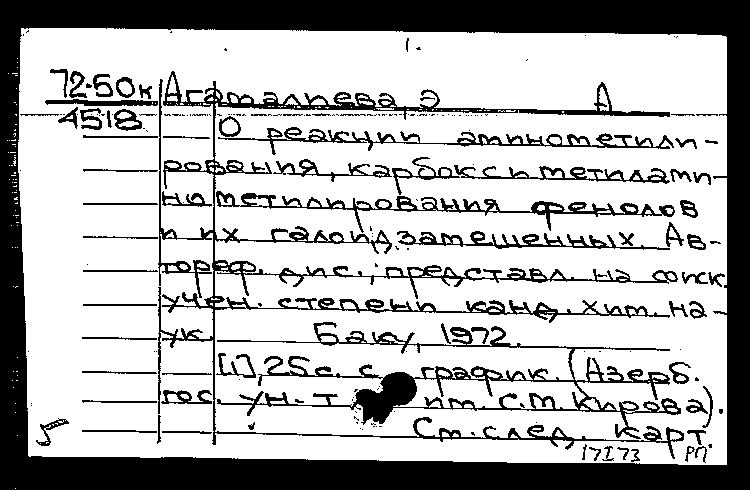 1.
72-50к Агаталиева, Э А
4518 О реакции аминометили-
рования, карбоксиметилами-
нометилирования фенолов
и их галоидзамещенных. Ав-
тореф. дис., представл. на соиск.
учен. степени канд. хим. на-
ук. Баку, 1972.
[1], 25 с. с график. (Азерб.
гос. ун-т им. С.М. Кирова).
См. след. карт.
17 I 73 РП